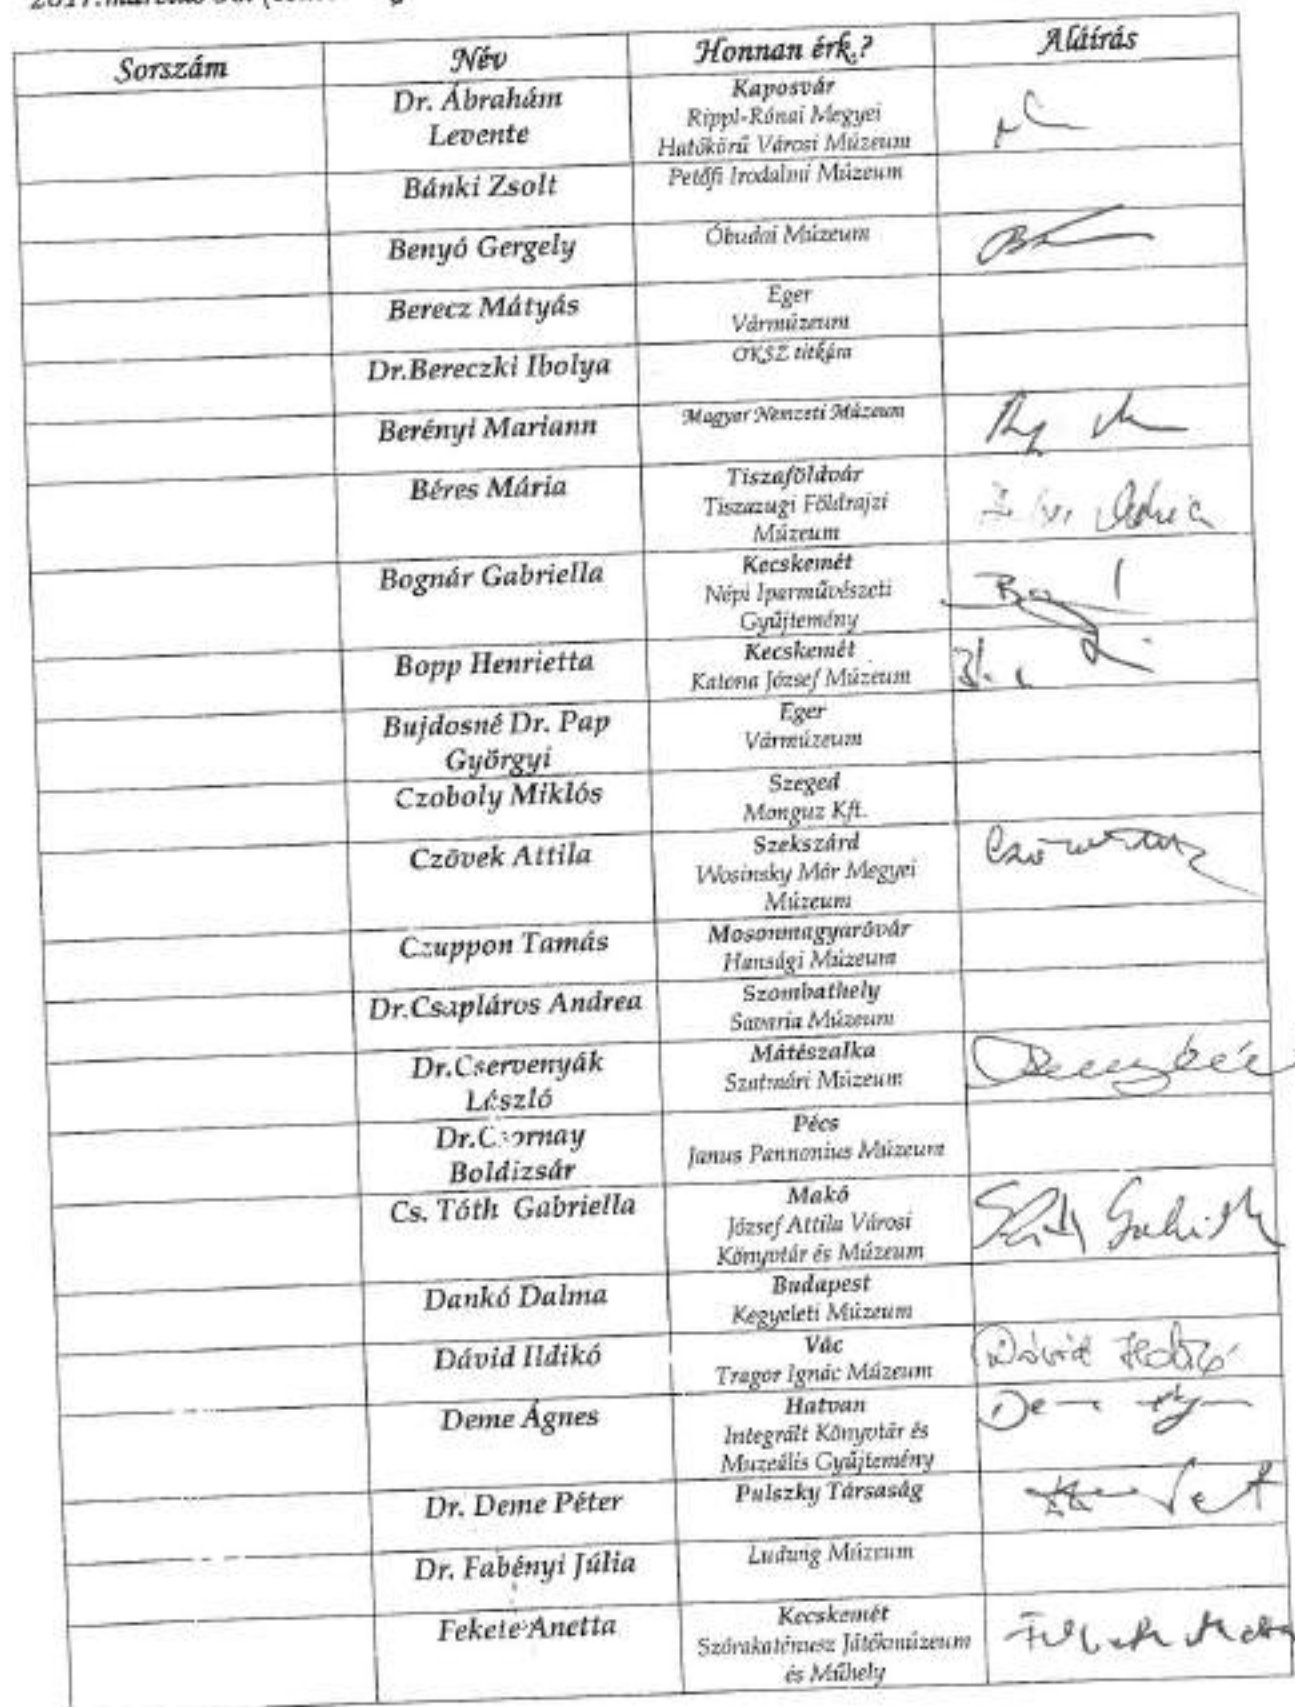 2017.március
Sorszám Név Honnan érk.? Aláírás
Dr. Ábrahám Levente
Kaposvár
Rippl-Rónai Megyei
Hatókörű Városi Múzeum
Bánki Zsolt
Petőfi Irodalmi Múzeum
Benyó Gergely
Óbudai Múzeum
Berecz Mátyás
Eger
Vármúzeum
Dr.Bereczki Ibolya
OKSZ titkára
Berényi Mariann
Magyar Nemzeti Múzeum
Béres Mária
Tiszaföldvár
Tiszazugi Földrajzi
Múzeum
Bognár Gabriella
Kecskemét
Népi Iparművészeti
Gyűjtemény
Bopp Henrietta
Kecskemét
Katona József Múzeum
Bujdosné Dr. Pap
Györgyi
Eger
Vármúzeum
Czoboly Miklós
Szeged
Monguz Kft.
Czövek Attila
Szekszárd
Wosinsky Mór Megyei
Múzeum
Czuppon Tamás
Mosonmagyaróvár
Hansági Múzeum
Dr.Csapláros Andrea
Szombathely
Savaria Múzeum
Dr.Cservenyák
László
Mátészalka
Szatmári Múzeum
Dr.Csornay
Boldizsár
Pécs
Janus Pannonius Múzeum
Cs. Tóth Gabriella
Makó
József Attila Városi
Könyvtár és Múzeum
Dankó Dalma
Budapest
Kegyeleti Múzeum
Dávid Ildikó
Vác
Tragor Ignác Múzeum
Dávid Ildikó
Deme Ágnes
Hatvan
Integrált Könyvtár és
Muzeális Gyűjtemény
Dr. Deme Péter
Pulszky Társaság
Dr. Fabényi Júlia
Ludwig Múzeum
Fekete Anetta
Kecskemét
Szórakaténusz Játékmúzeum
és Műhely